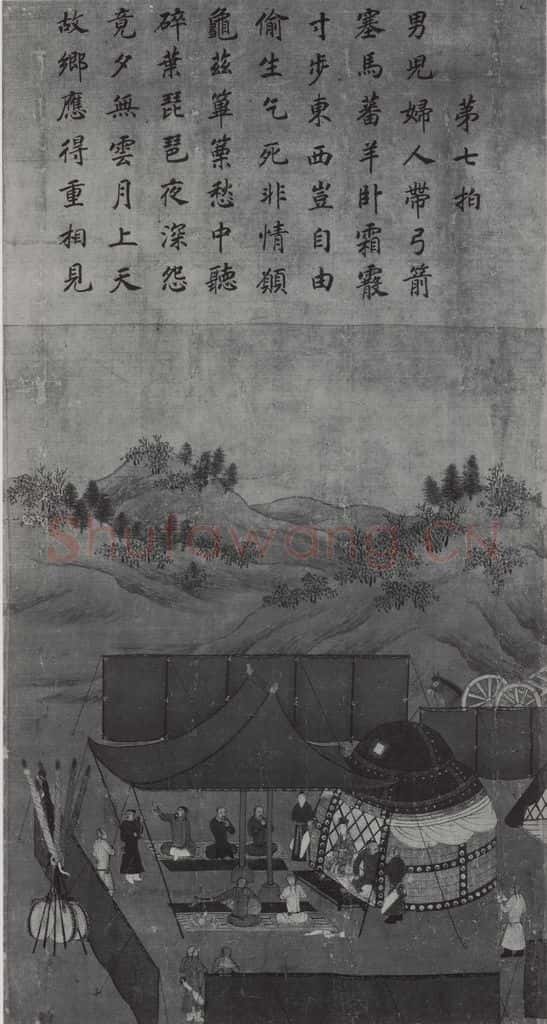 第七拍
男児婦人帶弓箭
塞馬蕃羊卧霜霰
寸步東西豈自由
偷生乞死非情願
龜茲篳篥愁中聽
碎葉琵琶夜深怨
竟夕無雲月上天
故鄉應得重相見
Shufawang.CN